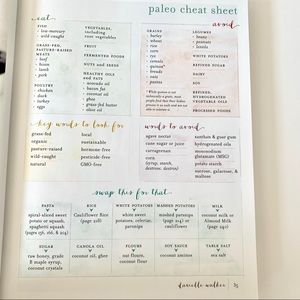 paleo cheat sheet
eat
FISH
• low-mercury
• wild-caught
GRASS-FED,
PASTURE-RAISED
MEATS
• beef
• bison
• lamb
• pork
POULTRY
• chicken
• duck
• turkey
• eggs
VEGETABLES,
including
root vegetables
FRUIT
FERMENTED FOODS
NUTS and SEEDS
HEALTHY OILS
and FATS
• avocado oil
• bacon fat
• coconut oil
• ghee
• grass-fed butter
• olive oil
avoid
GRAINS
• barley
• wheat
• corn
• rice
• quinoa*
• breads
• oats
• pasta
LEGUMES
• beans
• peanuts
• lentils
REFINED SUGAR
DAIRY
SOY
REFINED,
HYDROGENATED
VEGETABLE OILS
PROCESSED FOODS
key words to look for
grass-fed
organic
pasture-raised
wild-caught
natural
local
sustainable
hormone-free
pesticide-free
GMO-free
words to avoid
agave nectar
cane sugar or juice
carrageenan
corn
(syrup, starch,
dextrose, dextrin)
xanthan & guar gum
hydrogenated oils
monosodium
glutamate (MSG)
potato starch
sucrose, galactose, &
maltose
swap this for that
PASTA
spiral-sliced sweet
potato or squash,
spaghetti squash
RICE
Cauliflower Rice
WHITE POTATOES
white sweet
potatoes, celeriac,
parsnips
MASHED POTATOES
mashed parsnips
or cauliflower
MILK
coconut milk or
Almond Milk
SUGAR
raw honey, grade
B maple syrup,
coconut crystals
CANOLA OIL
coconut oil, ghee
FLOURS
nut flours,
coconut flour
SOY SAUCE
coconut aminos
TABLE SALT
sea salt
danielle walker